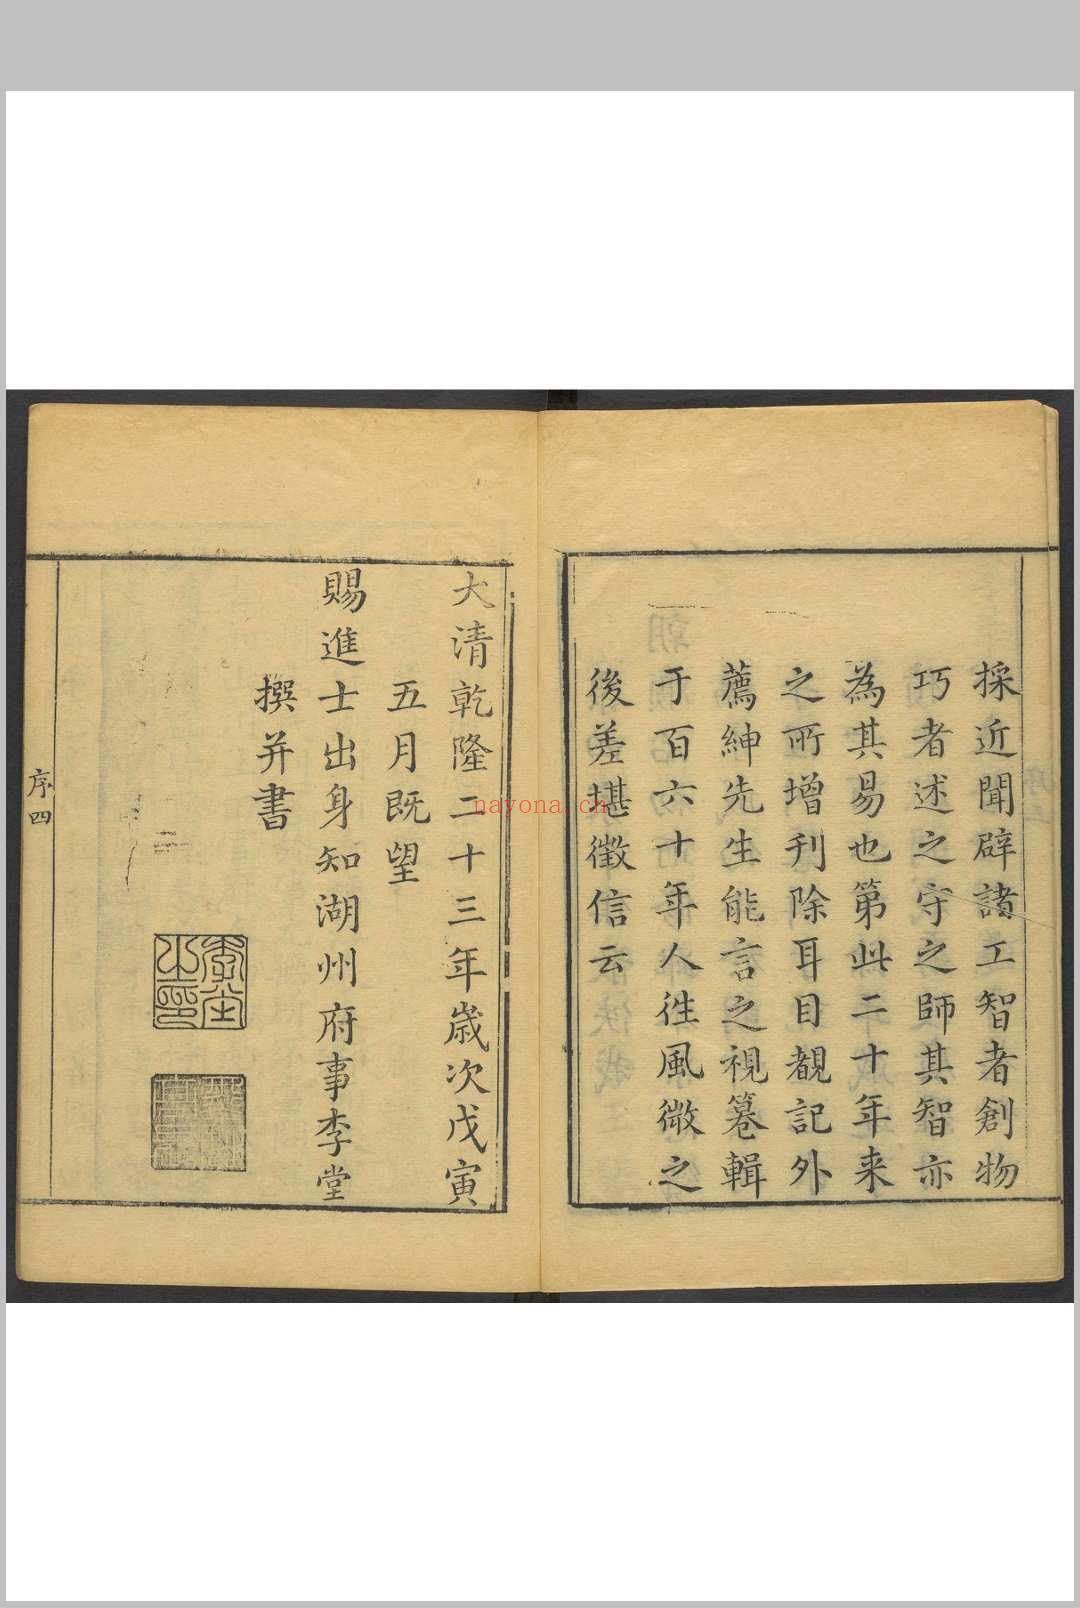 採近聞辟諸工智者創物
巧者述之守之師其智亦
為其易也第此二十年来
之所增刋除耳目覩記外
薦紳先生能言之視篹輯
于百六十年人徃風微之
後差堪徵信云
大清乾隆二十三年歲次戊寅
五月既望
賜進士出身知湖州府事李堂
撰并書
李堂之印
序四
nayona.cn